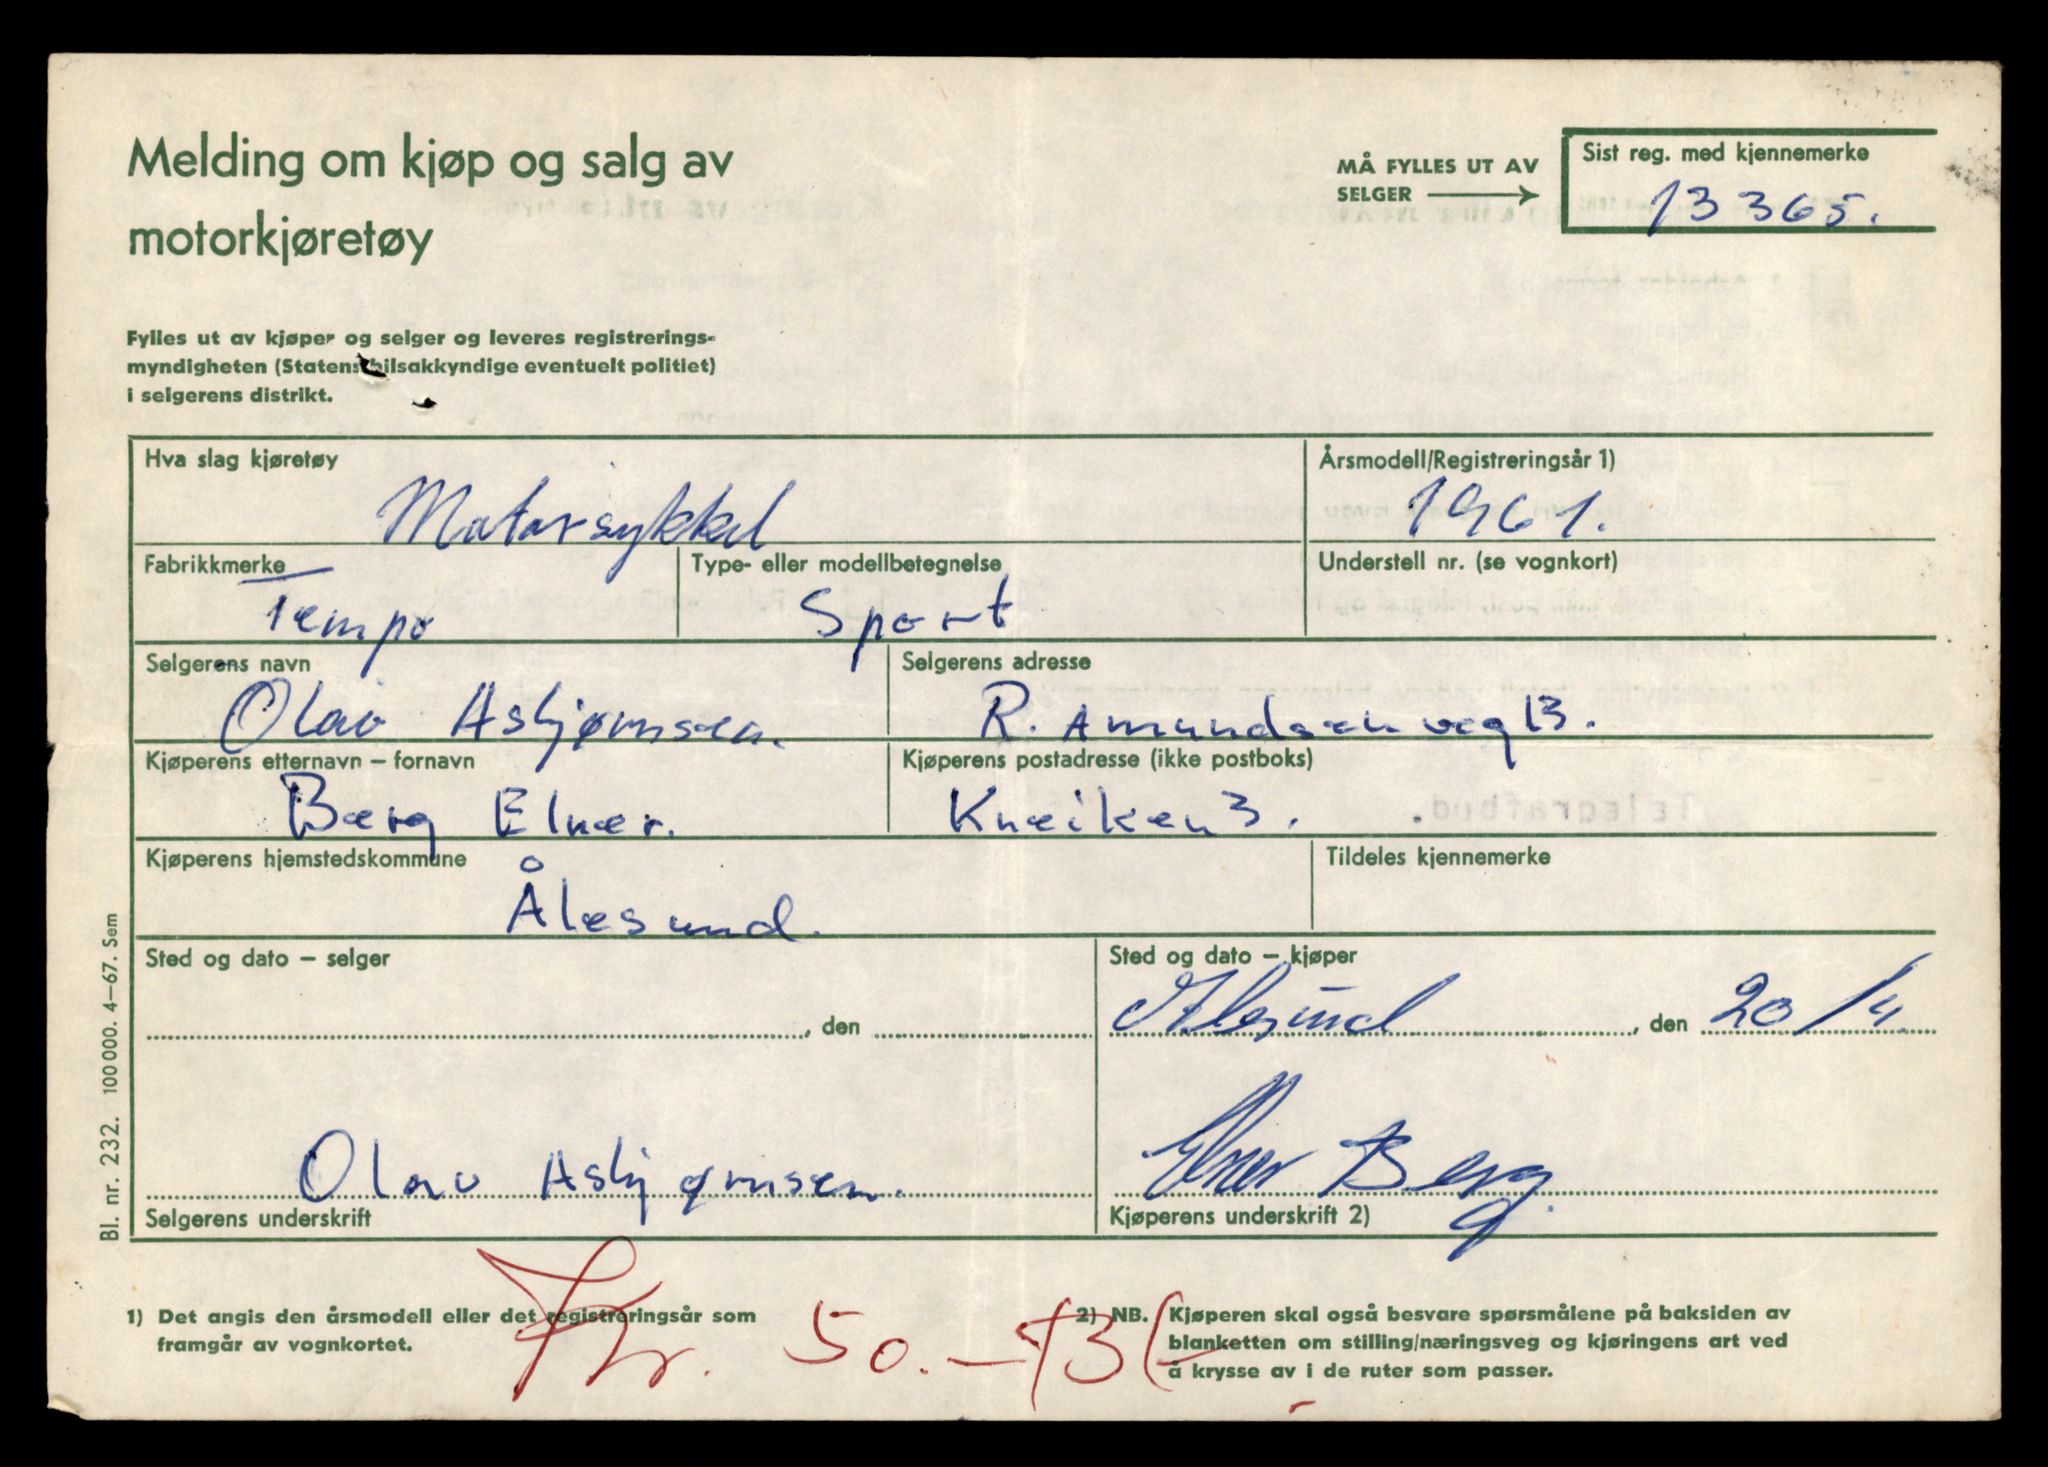 Melding om kjøp og salg av
motorkjøretøy
MÅ FYLLES UT AV
SELGER
Sist reg. med kjennemerke
13365.
Fylles ut av kjøper og selger og leveres registrerings-
myndigheten (Statens bilsakkyndige eventuelt politiet)
i selgerens distrikt.
Hva slag kjøretøy
Motorsykkel
Årsmodell/Registreringsår 1)
1961.
Fabrikkmerke
Tempo
Type- eller modellbetegnelse
Sport
Understell nr. (se vognkort)
Selgerens navn
Olav Asbjørnsen.
Selgerens adresse
R. Amundsen veg 13.
Kjøperens etternavn – fornavn
Berg Elner.
Kjøperens postadresse (ikke postboks)
Kneiken 3.
Telegrafbud.
Kjøperens hjemstedskommune
Ålesund.
Tildeles kjennemerke
Sted og dato – selger
, den
Sted og dato – kjøper
Ålesund, den 20/4.
Olav Asbjørnsen.
Selgerens underskrift
Elner Berg.
Kjøperens underskrift 2)
Bl. nr. 232. 100 000. 4–67. Sem
1) Det angis den årsmodell eller det registreringsår som
framgår av vognkortet.
Kr. 50.–
2) NB. Kjøperen skal også besvare spørsmålene på baksiden av
blanketten om stilling/næringsveg og kjøringens art ved
å krysse av i de ruter som passer.